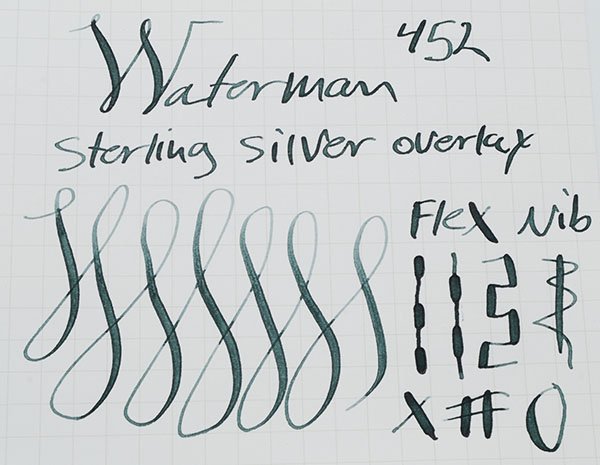 Waterman 452
Sterling silver overlay
Flex Nib
X # O